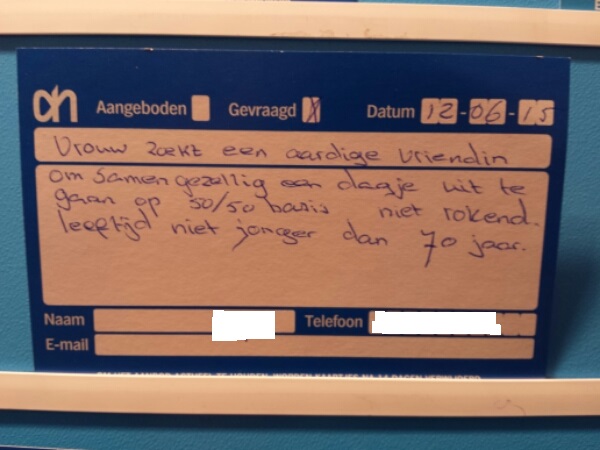 ah Aangeboden Gevraagd X Datum 12-06-15
Vrouw zoekt een aardige vriendin
om samen gezellig een dagje uit te
gaan op 50/50 basis niet rokend.
leeftijd niet jonger dan 70 jaar.
Naam Telefoon
E-mail